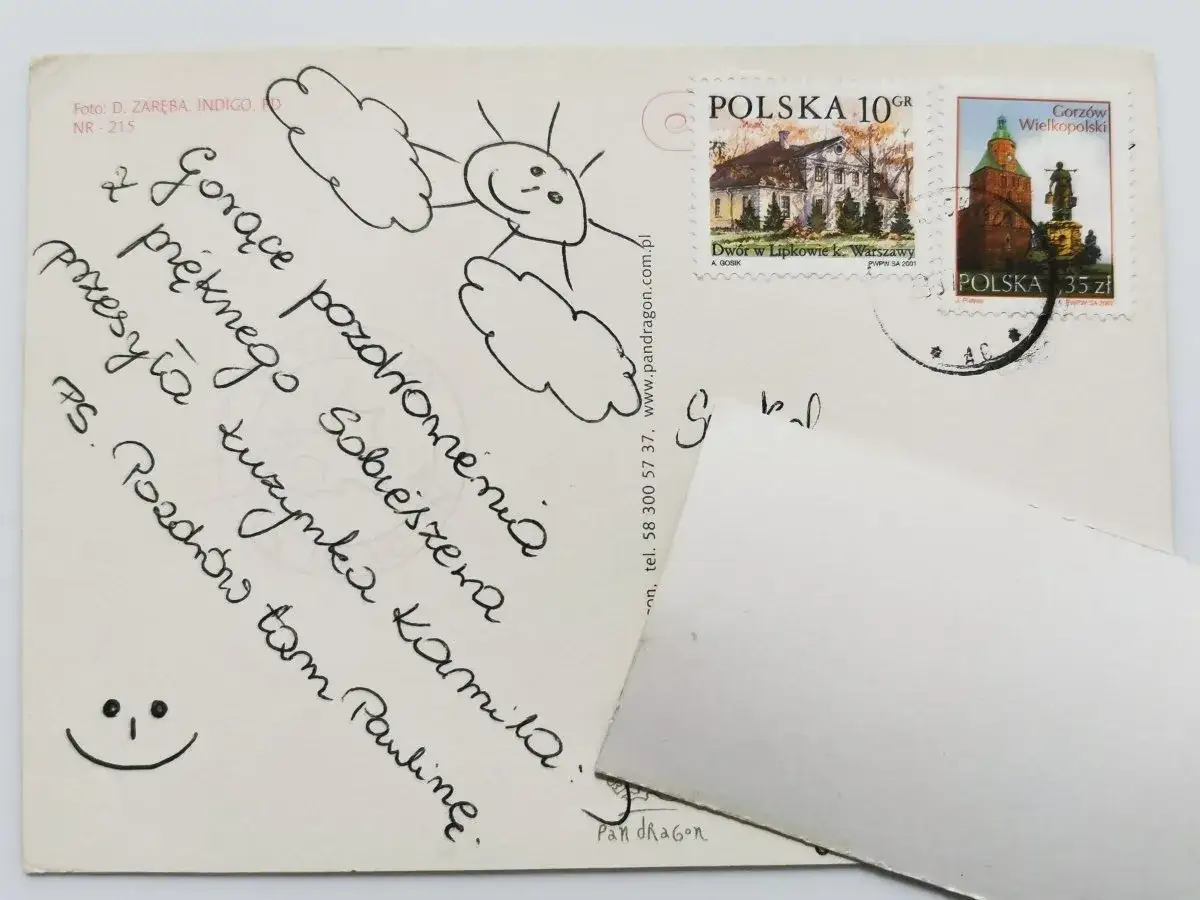 Foto: D. ZARĘBA, INDIGO, PD
NR - 215
Gorące pozdrowienia
z pięknego Sobieszewa
przesyła kuzynka Kamila :)
PS. Pozdrów tam Paulinę.
POLSKA 10GR
Dwór w Lipkowie k. Warszawy
A. GOSIK PWPW SA 2001
Gorzów
Wielkopolski
POLSKA 35 zł
PWPW SA 2001
AC
tel. 58 300 57 37, www.pandragon.com.pl
pan dragon